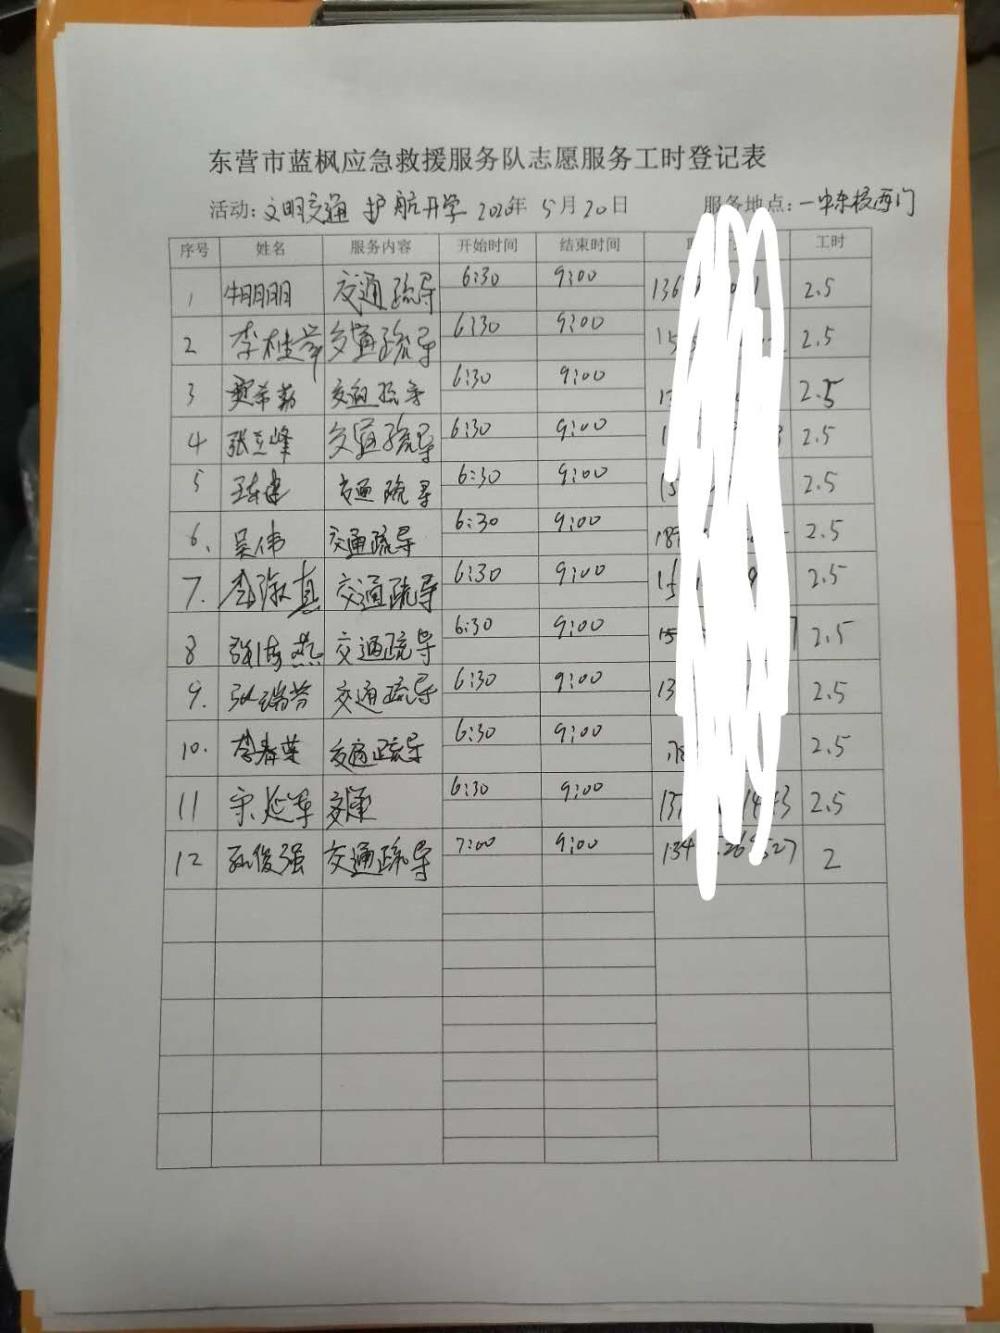 东营市蓝枫应急救援服务队志愿服务工时登记表
活动: 文明交通 护航开学 2020年 5月20日 服务地点: 一中东校西门
序号 姓名 服务内容 开始时间 结束时间 工时
1 牛明明 交通疏导 6:30 9:00 136 1 2.5
2 李桂 交通疏导 6:30 9:00 15 2.5
3 交通疏导 6:30 9:00 2.5
4 张立峰 交通疏导 6:30 9:00 1 3 2.5
5 交通疏导 6:30 9:00 15 2.5
6. 吴伟 交通疏导 6:30 9:00 18 2.5
7. 李淑真 交通疏导 6:30 9:00 15 2.5
8 张海燕 交通疏导 6:30 9:00 15 7 2.5
9. 张瑞芳 交通疏导 6:30 9:00 13 2.5
10. 李春荣 交通疏导 6:30 9:00 2.5
11 宋延军 6:30 9:00 13 2.5
12 孙俊强 交通疏导 7:00 9:00 134 2